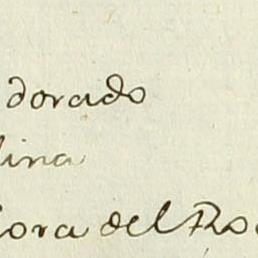 dorado
lina
lora del Ro